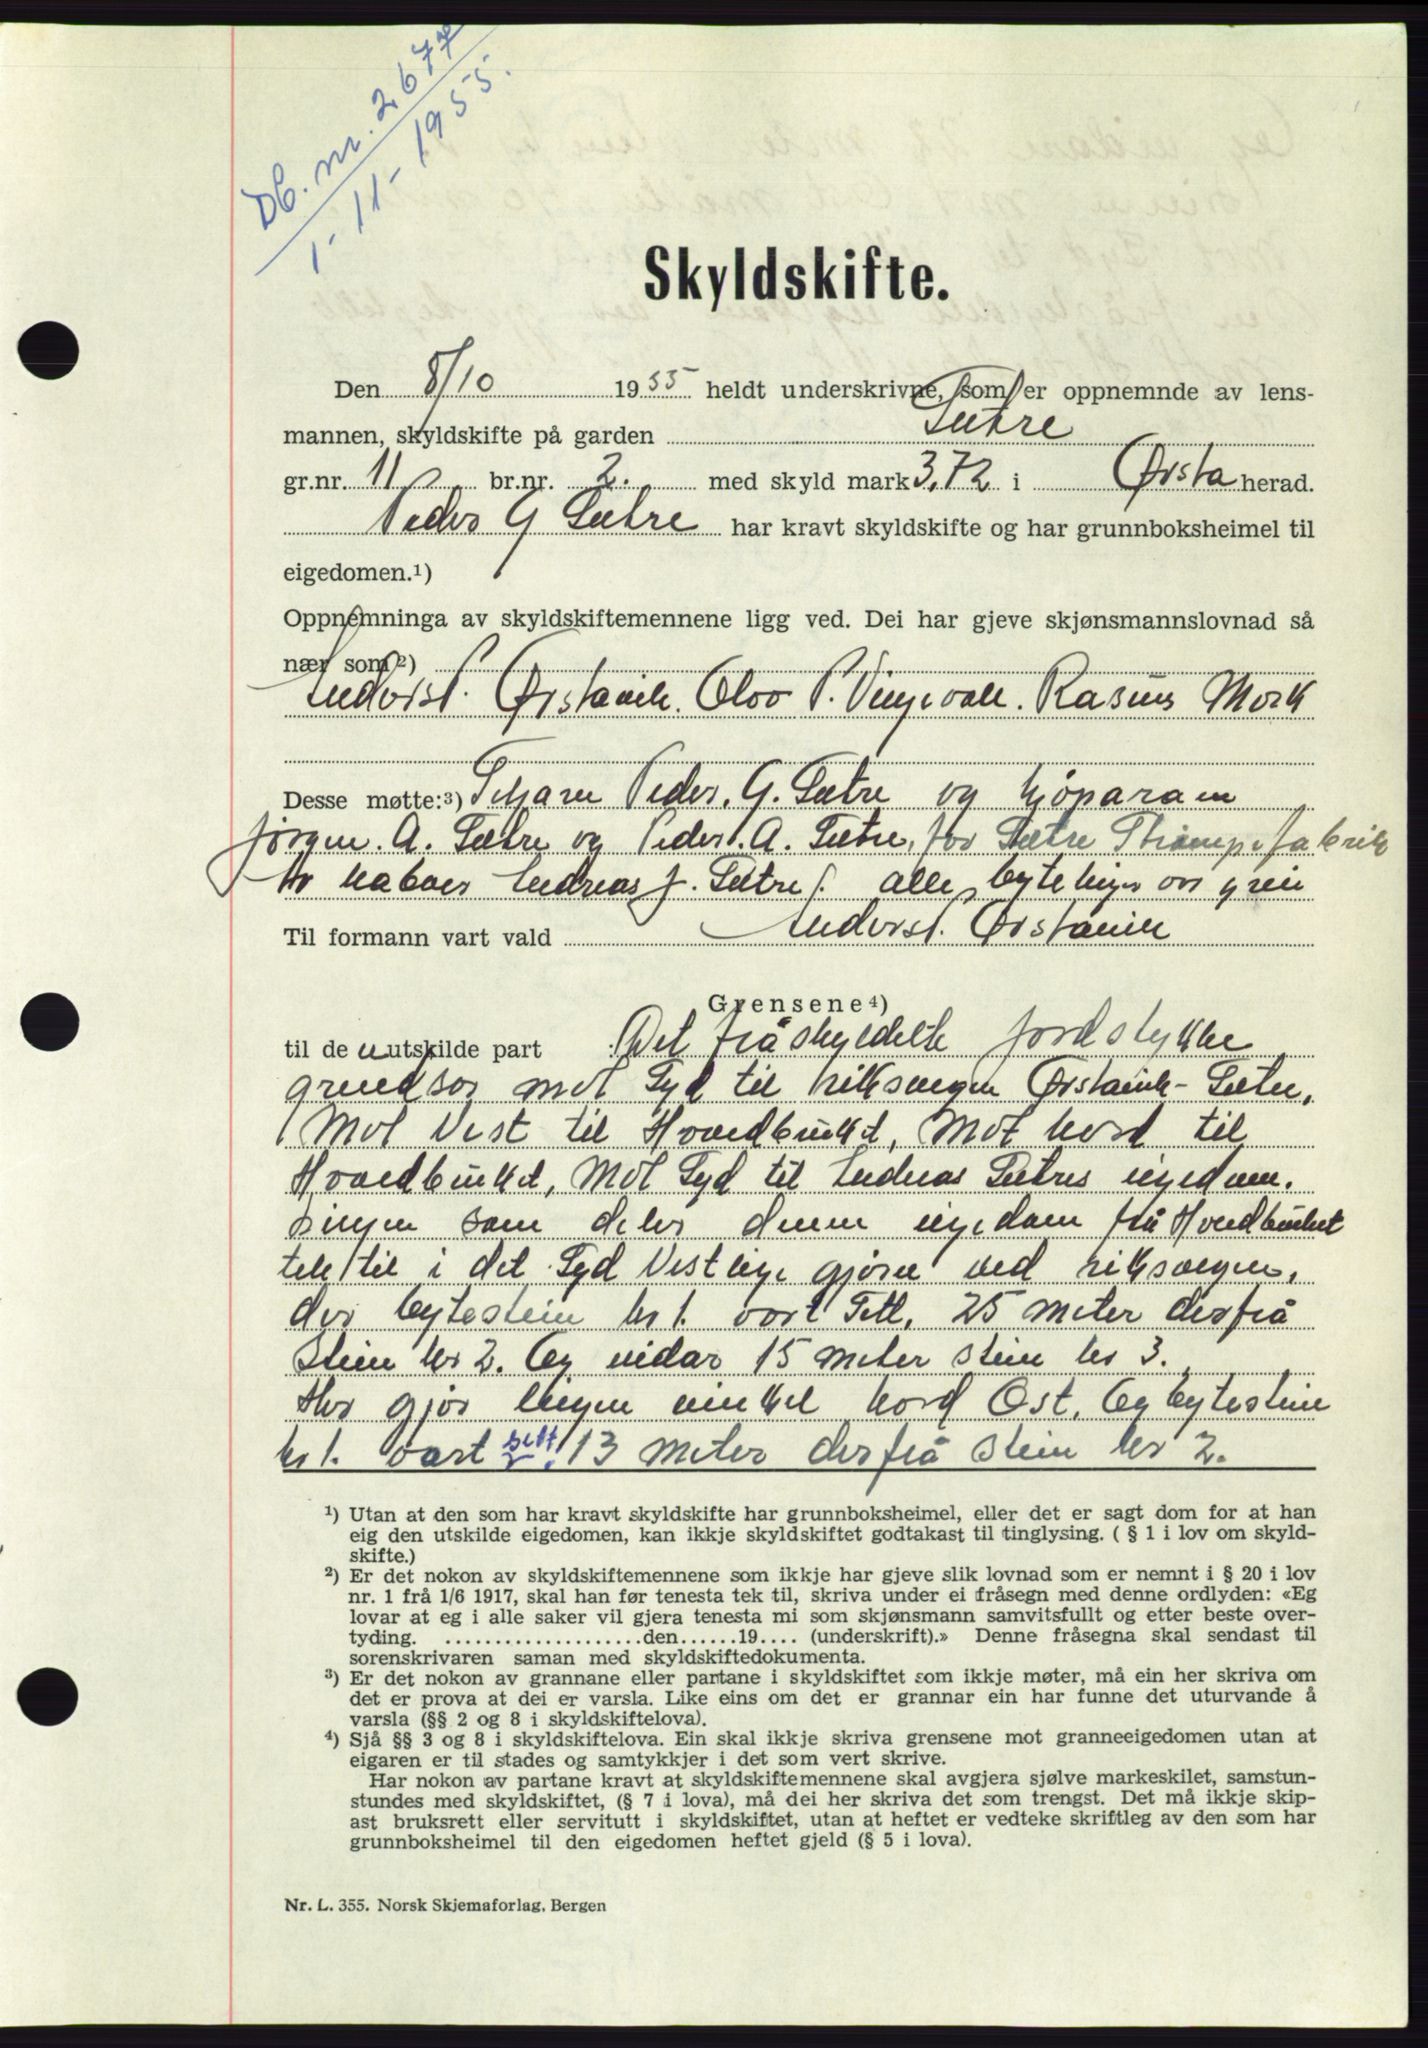 Db. nr. 2677
1-11-1955.
Skyldskifte.
Den 8/10 1955 heldt underskrivne, som er oppnemnde av lens-
mannen, skyldskifte på garden Sætre
gr.nr. 11 br.nr. 2. med skyld mark 3,72 i Ørsta herad.
Peder G Sætre har kravt skyldskifte og har grunnboksheimel til
eigedomen.¹)
Oppnemninga av skyldskiftemennene ligg ved. Dei har gjeve skjønsmannslovnad så
nær som²)
Anders P. Ørstavik. Olav P. Vingevoll. Rasmus Mork
Desse møtte:³) Seljaren Peder. G. Sætre og kjøparan
Jørgen. A. Sætre og Peder. A. Sætre, for Sætre Strømpefabrik
Av naboer Andreas J. Sætre. alle
Til formann vart vald Anders P. Ørstavik
Grensene⁴)
til de n utskilde part Det fråskyldelte jordstykke
grendsar mot Syd til riksvegen Ørstavik - Sætre,
Mot Vest til Hovedbruket, Mot Nord til
Hovedbruket, Mot Syd til Andreas Sætres eigedom.
som deler denne eigedom frå Hovedbruket
tek til i det Syd Vestlige gjøre ved riksvegen,
der bytestein nr 1. vart Sett, 25 meter derfrå
Stein nr 2. Og vidar 15 meter stein nr 3.
Her gjør lingen vinkel Nord Ost, Og bytestein
nr 1. vart sett. 13 meter derfrå stein nr 2.
¹) Utan at den som har kravt skyldskifte har grunnboksheimel, eller det er sagt dom for at han
eig den utskilde eigedomen, kan ikkje skyldskiftet godtakast til tinglysing. ( § 1 i lov om skyld-
skifte.)
²) Er det nokon av skyldskiftemennene som ikkje har gjeve slik lovnad som er nemnt i § 20 i lov
nr. 1 frå 1/6 1917, skal han før tenesta tek til, skriva under ei fråsegn med denne ordlyden: «Eg
lovar at eg i alle saker vil gjera tenesta mi som skjønsmann samvitsfullt og etter beste over-
tyding. ....................den......19.... (underskrift).» Denne fråsegna skal sendast til
sorenskrivaren saman med skyldskiftedokumenta.
³) Er det nokon av grannane eller partane i skyldskiftet som ikkje møter, må ein her skriva om
det er prova at dei er varsla. Like eins om det er grannar ein har funne det uturvande å
varsla (§§ 2 og 8 i skyldskiftelova).
⁴) Sjå §§ 3 og 8 i skyldskiftelova. Ein skal ikkje skriva grensene mot granneeigedomen utan at
eigaren er til stades og samtykkjer i det som vert skrive.
Har nokon av partane kravt at skyldskiftemennene skal avgjera sjølve markeskilet, samstun-
stundes med skyldskiftet, (§ 7 i lova), må dei her skriva det som trengst. Det må ikkje skip-
ast bruksrett eller servitutt i skyldskiftet, utan at heftet er vedteke skriftleg av den som har
grunnboksheimel til den eigedomen heftet gjeld (§ 5 i lova).
Nr. L. 355. Norsk Skjemaforlag, Bergen